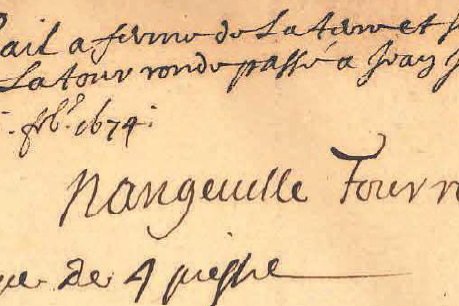 Bail a ferme de La terre et s
La tour ronde passé a Jean J
. fbr. 1674.
Nangeville Tour r
de 4 piesse